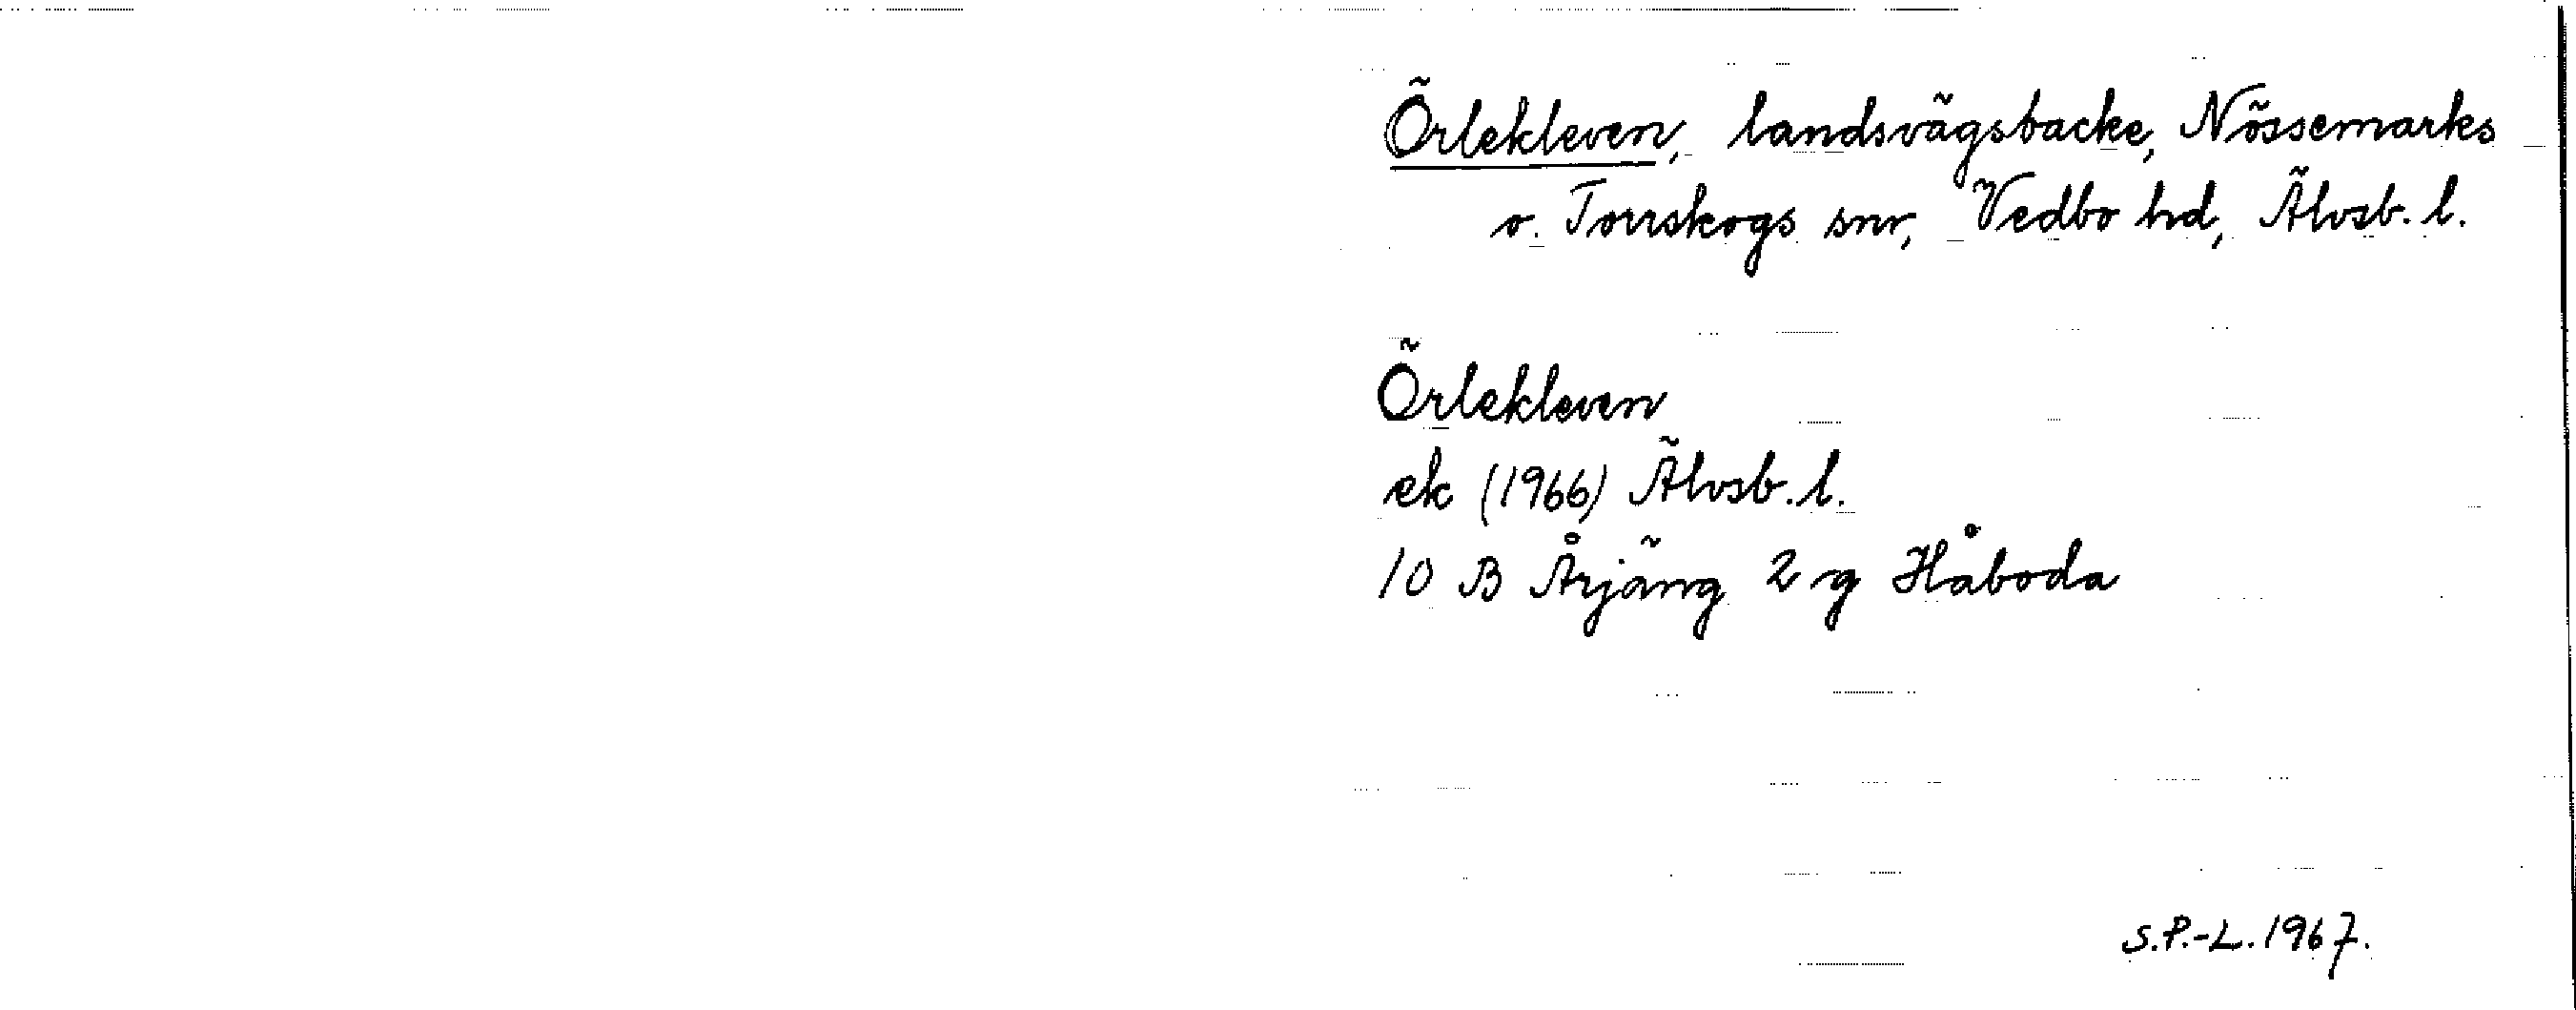 Örlekleven, landsvägsbacke, Nössemarks
o. Torrskogs snr, Vedbo hd, Älvsb. l.
Örlekleven
ek (1966) Älvsb. l.
10 B Årjäng 2 g Håboda
S.P.-L. 1967.